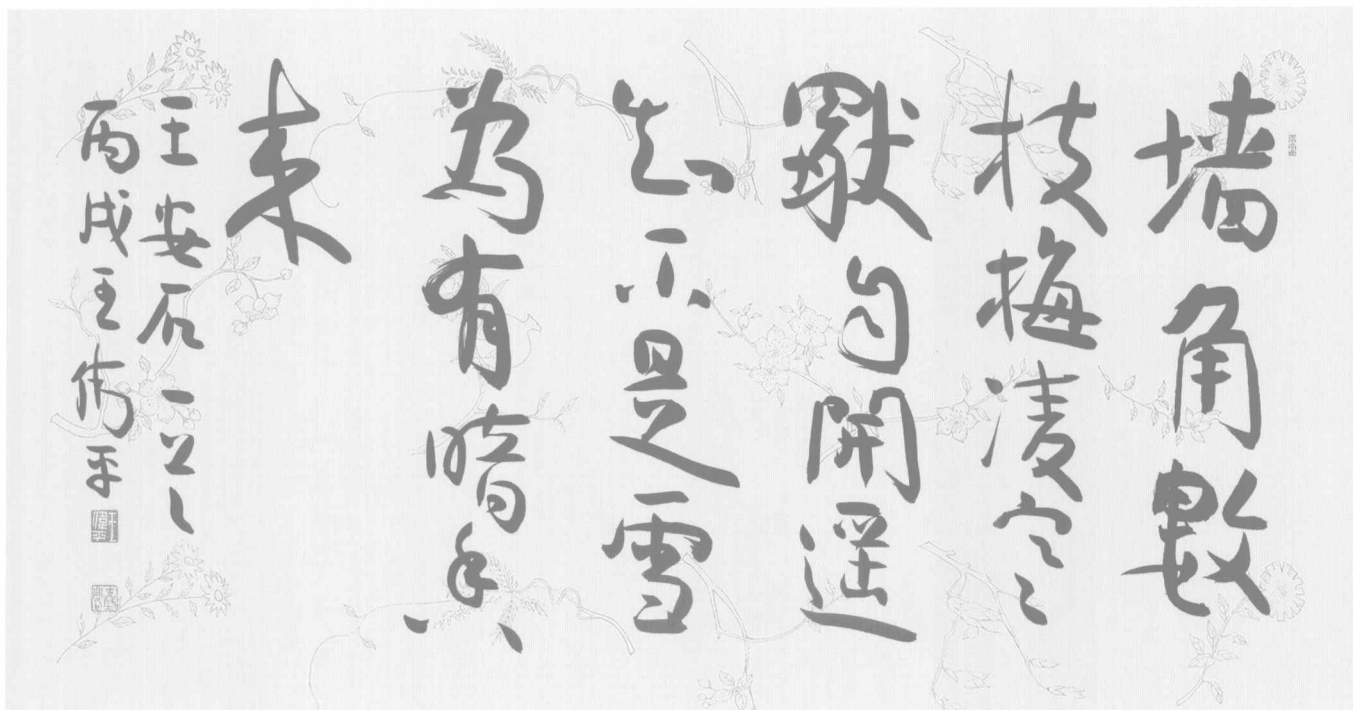 墙角數
枝梅凌寒
獨自開遥
知不是雪
為有暗香
来
王安石
丙戌王偉平